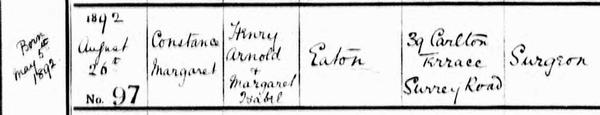 Born
May 5th
1892.
1892
August
26th
No. 97
Constance
Margaret
Henry
Arnold
+
Margaret
Isabel
Eaton
39 Carlton
Terrace
Surrey Road
Surgeon